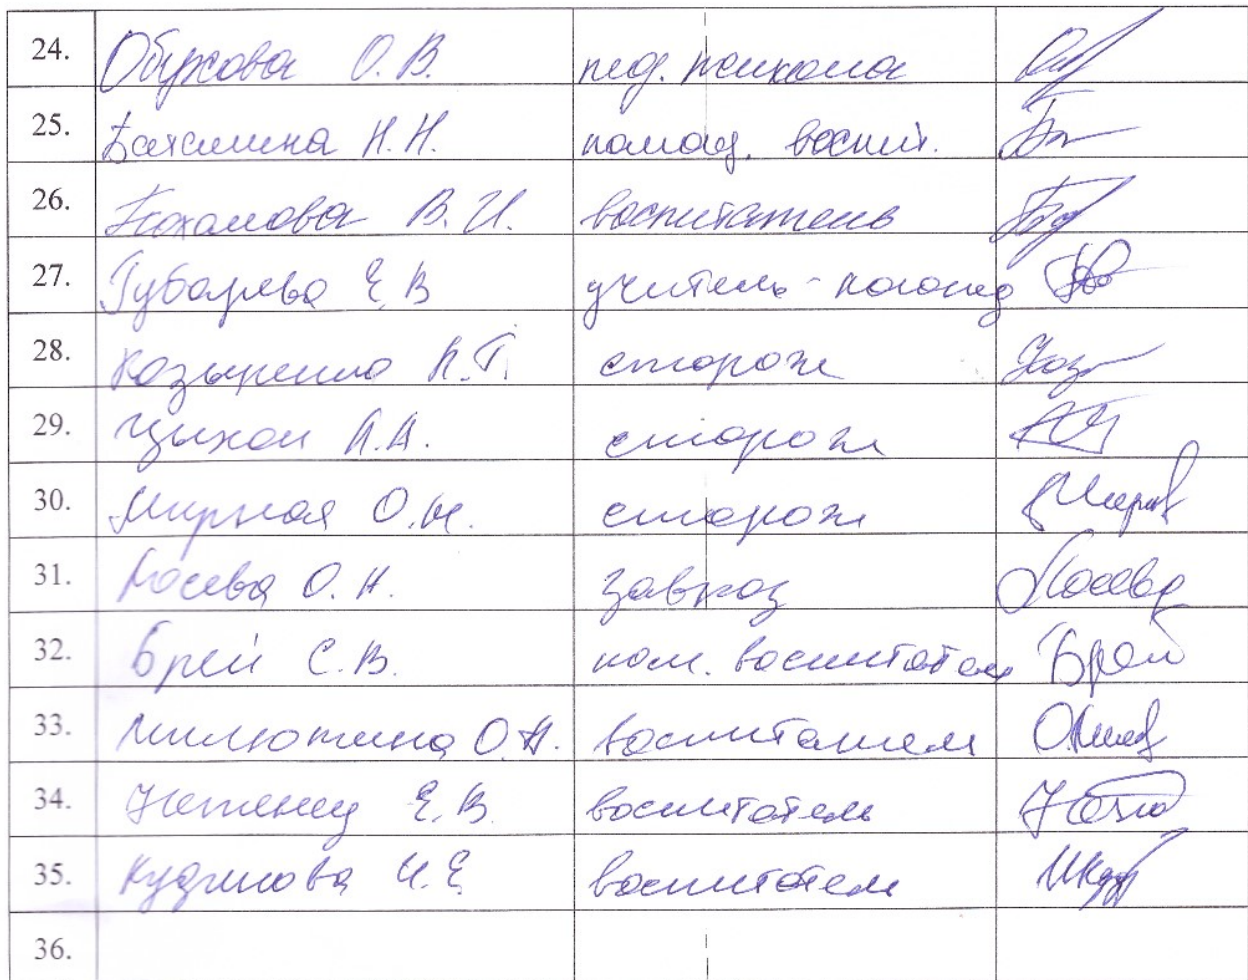 24. Обухова О. В. пед. психолог
25. Баталина Н. Н. помощ. воспит.
26. В. И. воспитатель
27. Губарева Е. В учитель-логопед
28. Козыренко Л. Г. сторож
29. Цыхон Л. А. сторож
30. Мирная О. сторож
31. Лосева О. Н. завхоз Лосева
32. Брей С. В. пом. воспитателя Брей
33. Милютина О. Н. воспитатель
34. Е. В. воспитатель
35. И. Е. воспитатель
36.